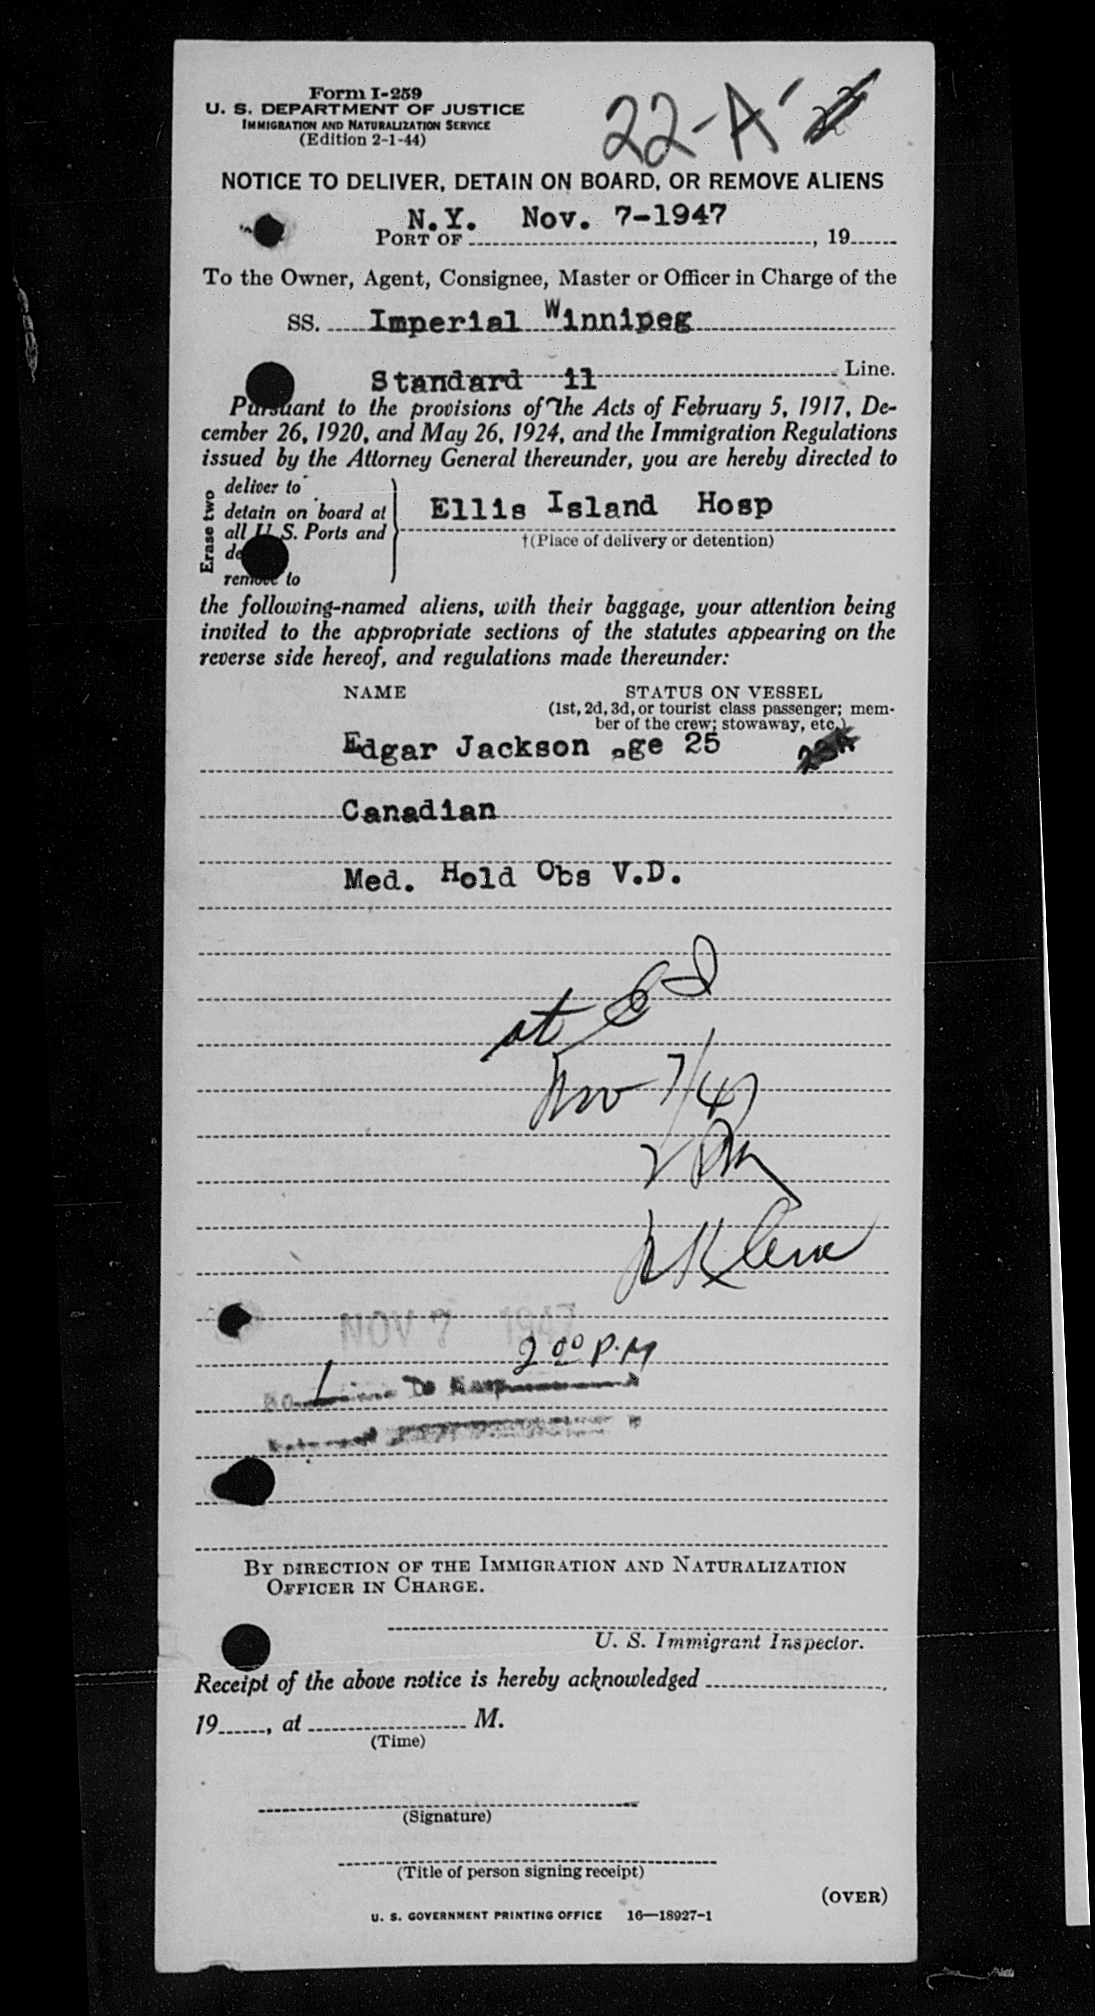 Form I-259
U. S. DEPARTMENT OF JUSTICE
IMMIGRATION AND NATURALIZATION SERVICE
(Edition 2-1-44)
22-A
NOTICE TO DELIVER, DETAIN ON BOARD, OR REMOVE ALIENS
N.Y. Nov. 7-1947
PORT OF , 19
To the Owner, Agent, Consignee, Master or Officer in Charge of the
SS. Imperial Winnipeg
Standard 11 Line.
Pursuant to the provisions of the Acts of February 5, 1917, De-
cember 26, 1920, and May 26, 1924, and the Immigration Regulations
issued by the Attorney General thereunder, you are hereby directed to
Erase two
deliver to
detain on board at
all U.S. Ports and
remove to
Ellis Island Hosp
†(Place of delivery or detention)
the following-named aliens, with their baggage, your attention being
invited to the appropriate sections of the statutes appearing on the
reverse side hereof, and regulations made thereunder:
NAME STATUS ON VESSEL
(1st, 2d, 3d, or tourist class passenger; mem-
ber of the crew; stowaway, etc.)
Edgar Jackson age 25
Canadian
Med. Hold Obs V.D.
at
Nov 7/47
2 PM
Klein
NOV 7 1947
2 00 P.M
To Hosp
BY DIRECTION OF THE IMMIGRATION AND NATURALIZATION
OFFICER IN CHARGE.
U. S. Immigrant Inspector.
Receipt of the above notice is hereby acknowledged ,
19 , at M.
(Time)
(Signature)
(Title of person signing receipt)
(OVER)
U. S. GOVERNMENT PRINTING OFFICE 16—18927-1